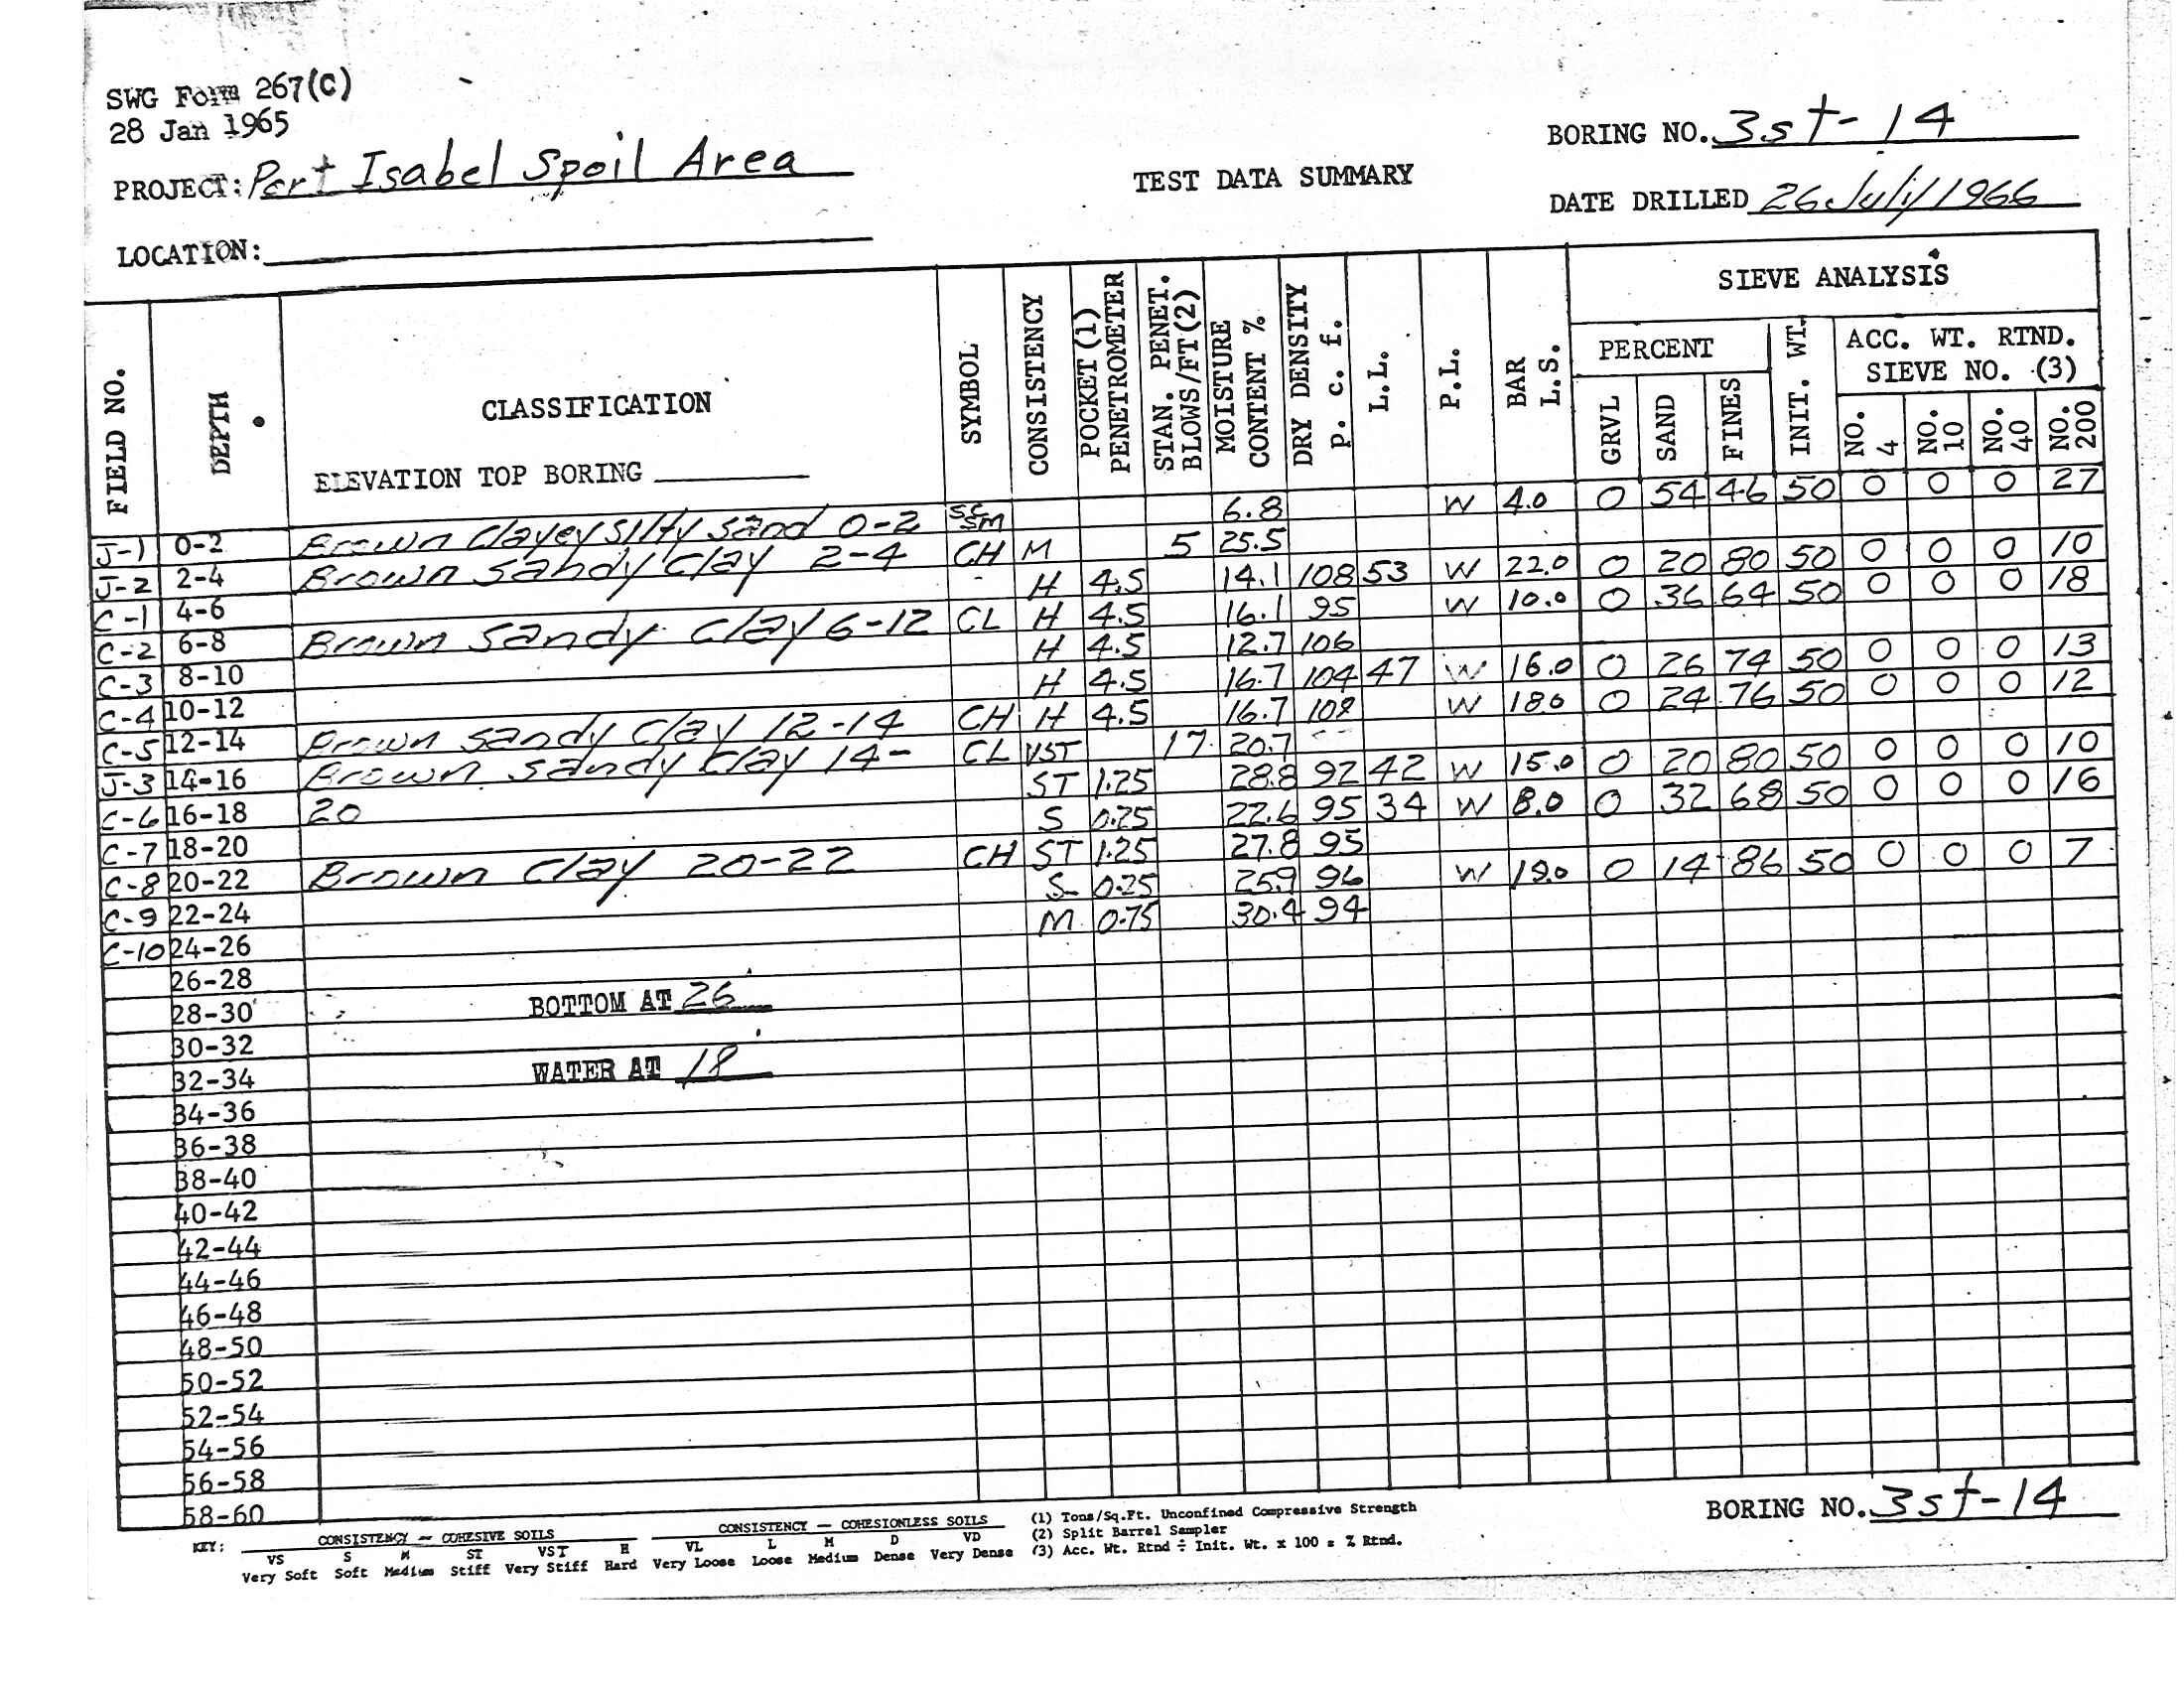 SWG Form 267(C)
28 Jan 1965
BORING NO. 3st-14
PROJECT: Port Isabel Spoil Area
TEST DATA SUMMARY
DATE DRILLED 26 July 1966
LOCATION:
FIELD NO. DEPTH CLASSIFICATION SYMBOL CONSISTENCY POCKET (1) PENETROMETER STAN. PENET. BLOWS/FT(2) MOISTURE CONTENT % DRY DENSITY p. c. f. L.L. P.L. BAR L.S. SIEVE ANALYSIS
PERCENT INIT. WT. ACC. WT. RTND. SIEVE NO. (3)
GRVL SAND FINES NO. 4 NO. 10 NO. 40 NO. 200
ELEVATION TOP BORING
J-1 0-2 Brown Clayey silty sand 0-2 SC SM 6.8 W 4.0 0 54 46 50 0 0 0 27
J-2 2-4 Brown sandy clay 2-4 CH M 5 25.5
C-1 4-6 H 4.5 14.1 108 53 W 22.0 0 20 80 50 0 0 0 10
C-2 6-8 Brown sandy clay 6-12 CL H 4.5 16.1 95 W 10.0 0 36 64 50 0 0 0 18
C-3 8-10 H 4.5 12.7 106
C-4 10-12 H 4.5 16.7 104 47 W 16.0 0 26 74 50 0 0 0 13
C-5 12-14 Brown sandy clay 12-14 CH H 4.5 16.7 108 W 18.0 0 24 76 50 0 0 0 12
J-3 14-16 Brown sandy clay 14- CL VST 17 20.7 --
C-6 16-18 20 ST 1.25 28.8 92 42 W 15.0 0 20 80 50 0 0 0 10
C-7 18-20 S 0.25 22.6 95 34 W 8.0 0 32 68 50 0 0 0 16
C-8 20-22 Brown Clay 20-22 CH ST 1.25 27.8 95
C-9 22-24 S 0.25 25.9 96 W 19.0 0 14 86 50 0 0 0 7
C-10 24-26 M 0.75 30.4 94
26-28
28-30 BOTTOM AT 26'
30-32
32-34 WATER AT 18'
34-36
36-38
38-40
40-42
42-44
44-46
46-48
48-50
50-52
52-54
54-56
56-58
58-60
BORING NO. 3st-14
KEY: CONSISTENCY - COHESIVE SOILS CONSISTENCY - COHESIONLESS SOILS
VS S M ST VST H VL L M D VD
Very Soft Soft Medium Stiff Very Stiff Hard Very Loose Loose Medium Dense Very Dense
(1) Tons/Sq.Ft. Unconfined Compressive Strength
(2) Split Barrel Sampler
(3) Acc. Wt. Rtnd ÷ Init. Wt. x 100 = % Rtnd.